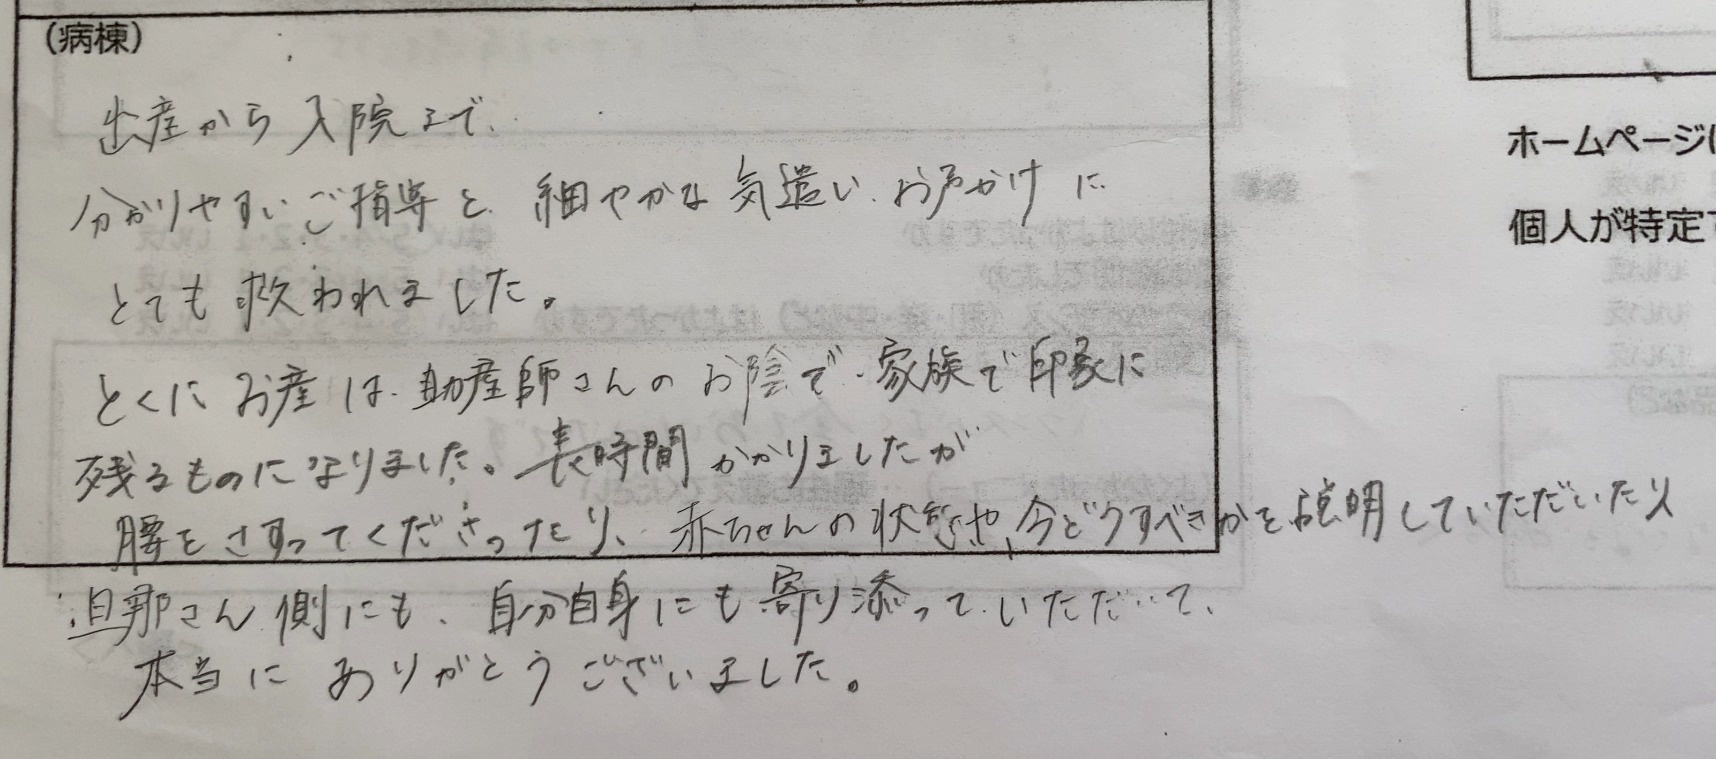 (病棟)
出産から入院まで、
分かりやすいご指導と、細やかな気遣い、お声かけに
とても救われました。
とくにお産は、助産師さんのお陰で、家族で印象に
残るものになりました。長時間かかりましたが
腰をさすってくださったり、赤ちゃんの状態や、今どうすべきかを説明していただいたり
旦那さん側にも、自分自身にも寄り添っていただいて、
本当にありがとうございました。
ホームページ
個人が特定